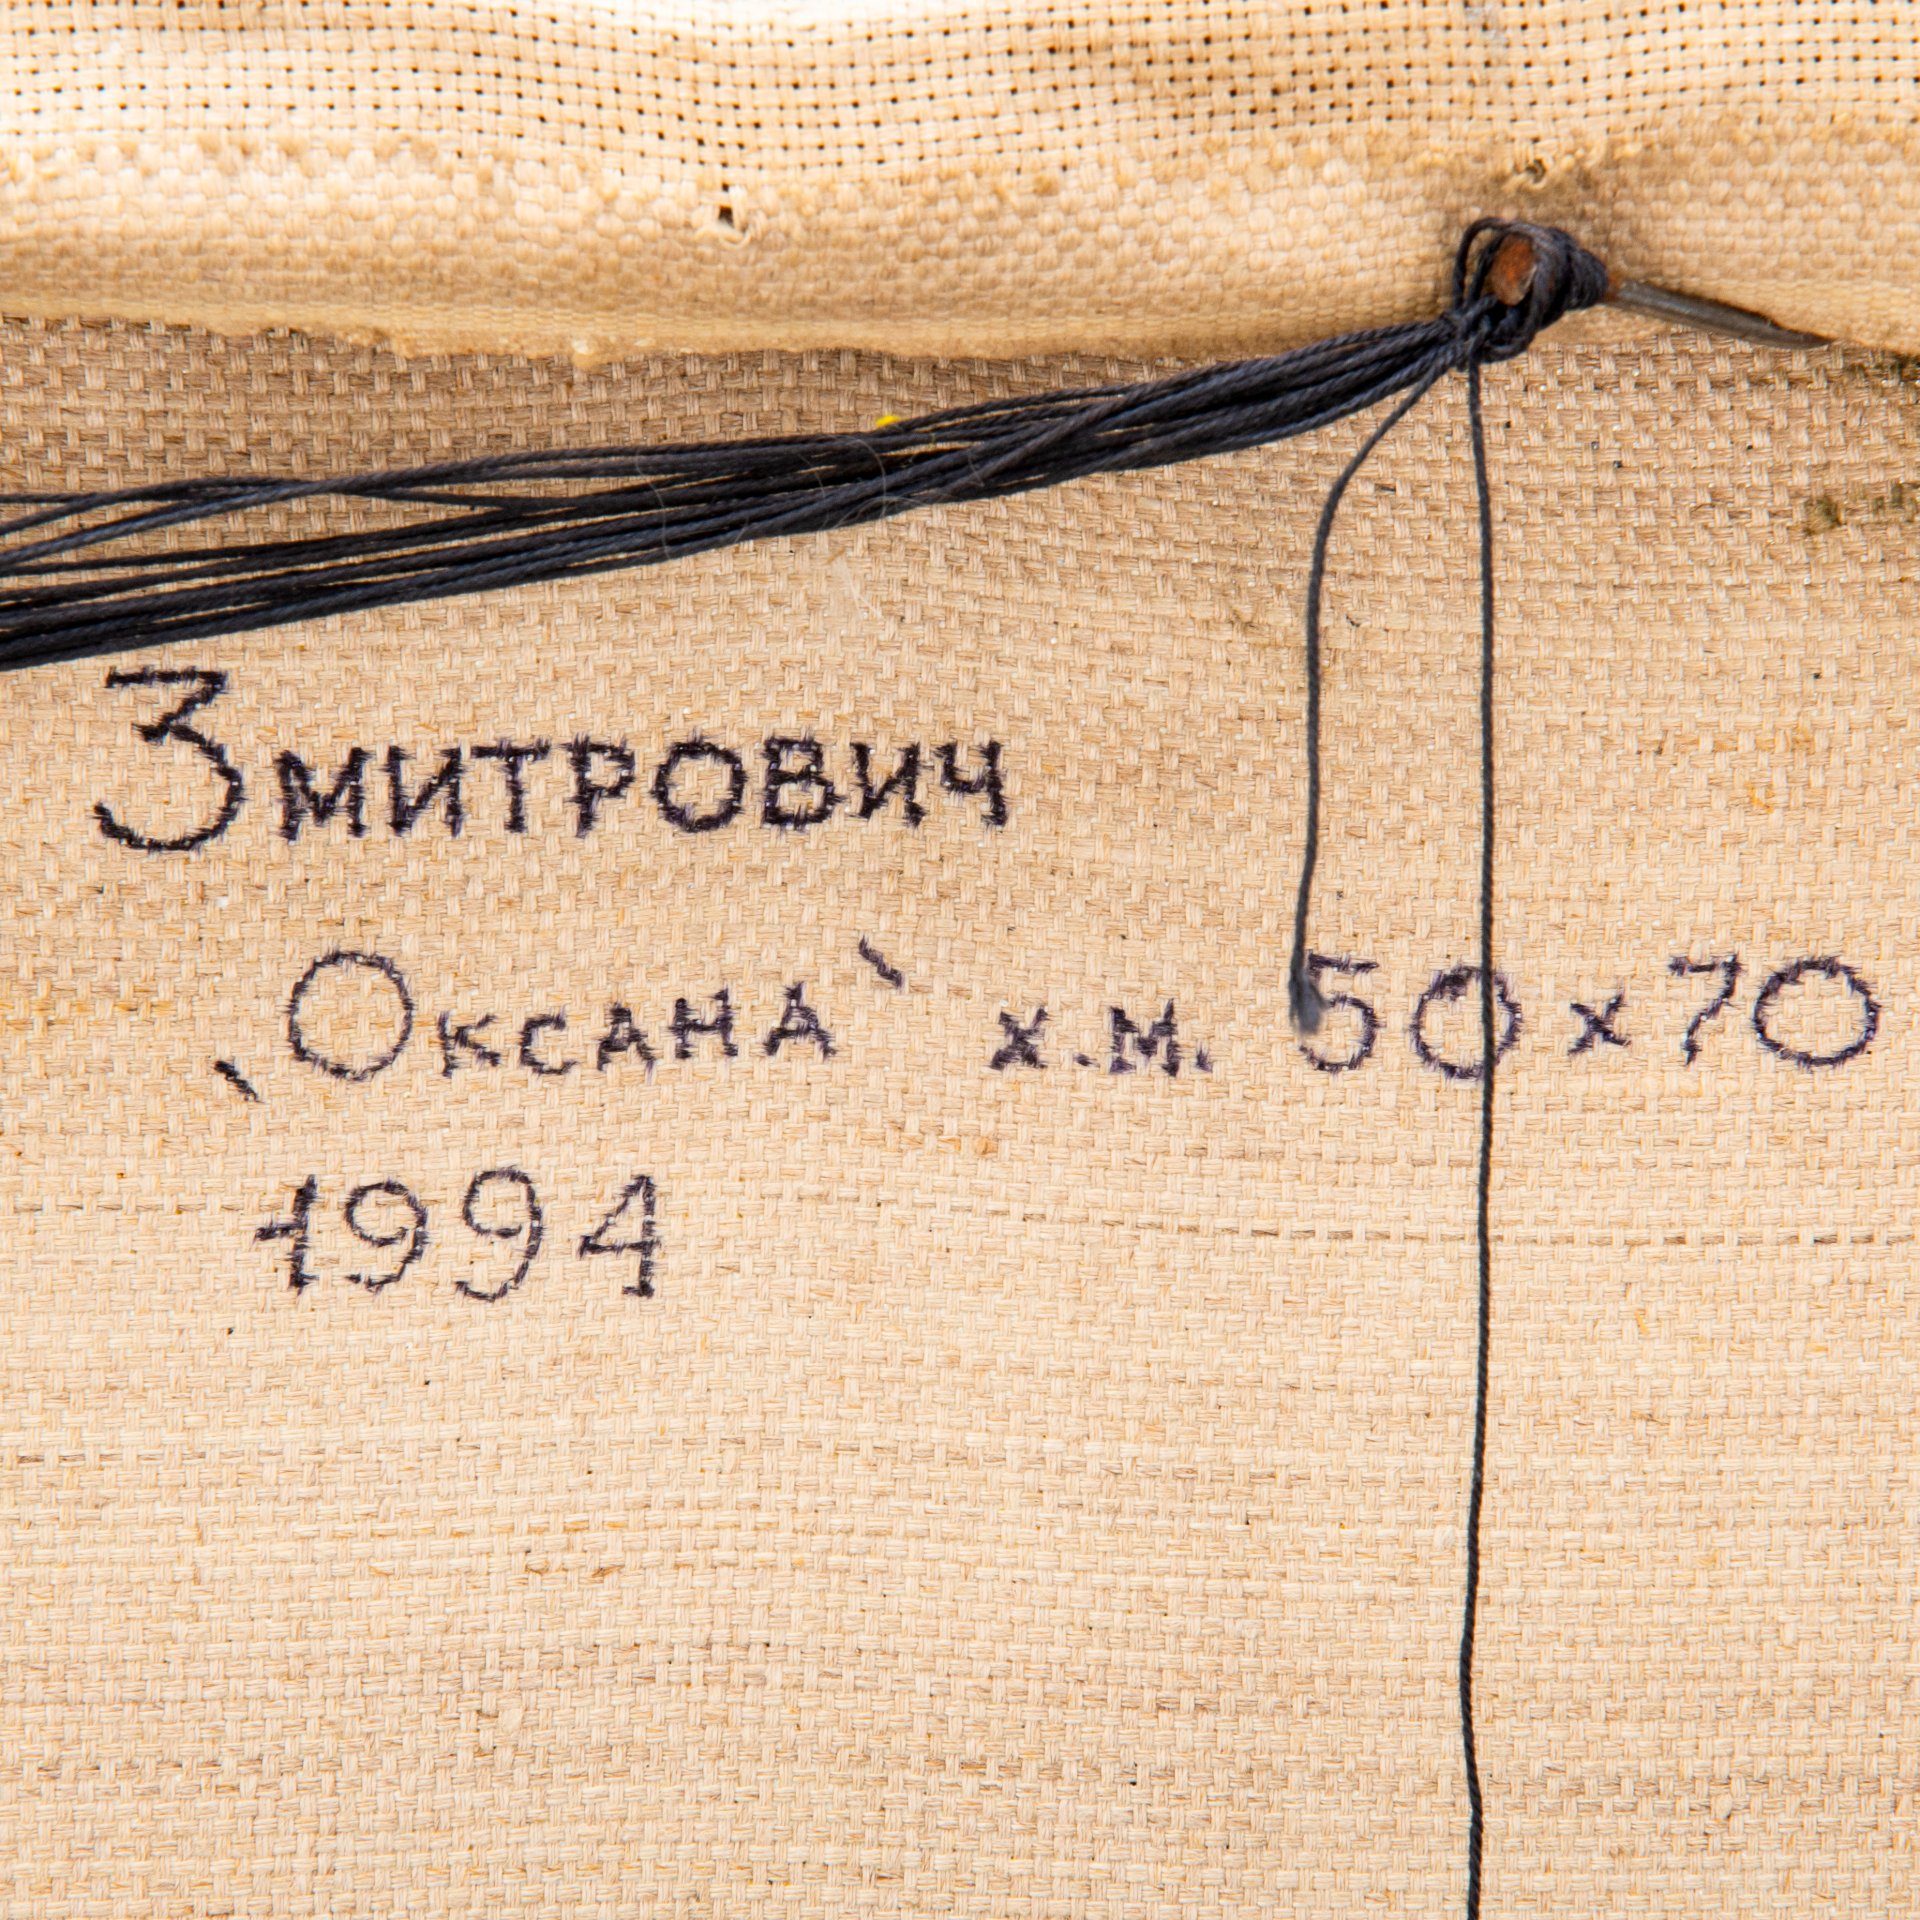 Змитрович
‚Оксана‵ х.м. 50х70
1994